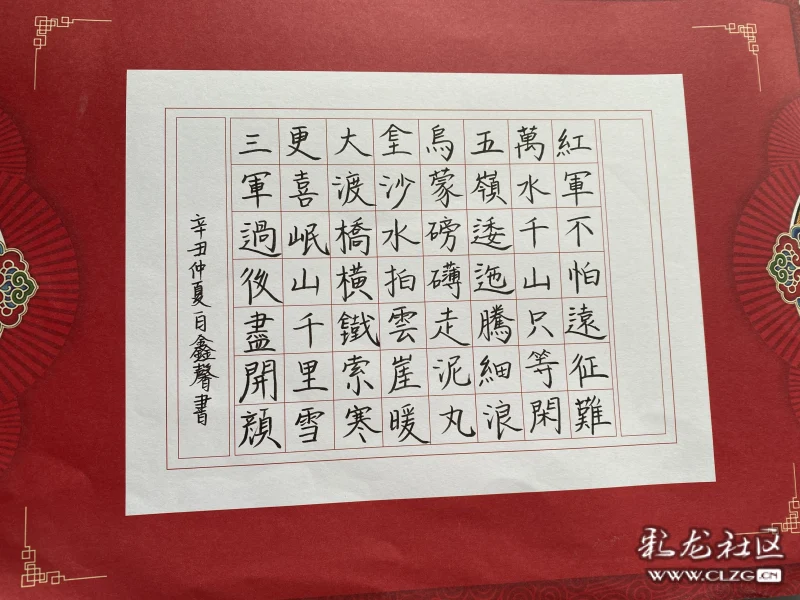 紅軍不怕遠征難
萬水千山只等閑
五嶺逶迤騰細浪
烏蒙磅礴走泥丸
金沙水拍雲崖暖
大渡橋橫鐵索寒
更喜岷山千里雪
三軍過後盡開顔
辛丑仲夏百鑫馨書
彩龙社区
WWW.CLZG.CN